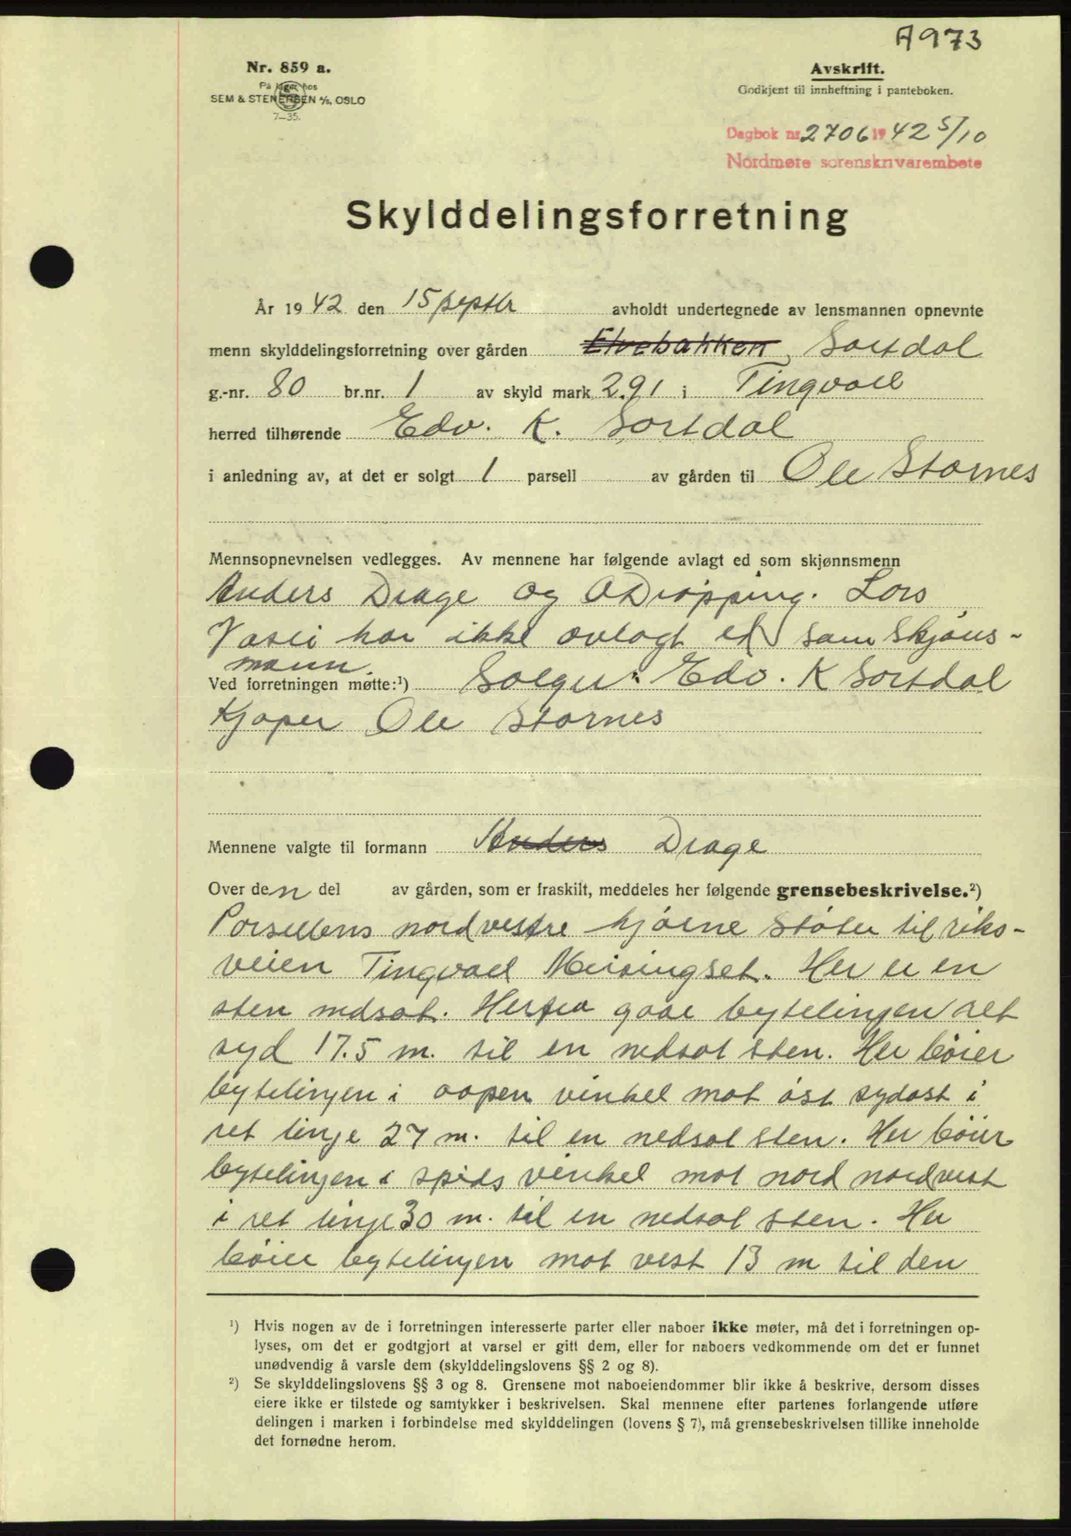 A973
Nr. 859 a.
På lager hos
SEM & STENERSEN A/S, OSLO
7–35.
Avskrift.
Godkjent til innheftning i panteboken.
Dagbok nr. 2706 1942 5/10
Nordmøre sorenskriverembete
Skylddelingsforretning
År 1942 den 15 septbr avholdt undertegnede av lensmannen opnevnte
menn skylddelingsforretning over gården Elvebakken Sortdal
g.-nr. 80 br.nr. 1 av skyld mark 2.91 i Tingvoll
herred tilhørende Edv. K. Sortdal
i anledning av, at det er solgt 1 parsell av gården til Ole Stornes
Mennsopnevnelsen vedlegges. Av mennene har følgende avlagt ed som skjønnsmenn
Anders Drage og O Drøpping. Lars
har ikke avlagt ed som skjøns-
mann.
Ved forretningen møtte:¹) Selger: Edv. K Sortdal
Kjøper Ole Stornes
Mennene valgte til formann Anders Drage
Over den del av gården, som er fraskilt, meddeles her følgende grensebeskrivelse.²)
Parsellens nordvestre hjørne støter til riks-
veien Tingvoll Meisingset. Her er en
sten nedsat. Herfra gaar bytelinjen ret
syd 17.5 m. til en nedsat sten. Her bøier
bytelinjen i aapen vinkel mot øst sydøst i
ret linje 27 m. til en nedsat sten. Her bøier
bytelinjen i spids vinkel mot nord nordvest
i ret linje 30 m. til en nedsat sten. Her
bøier bytelinjen mot vest 13 m til den
¹) Hvis nogen av de i forretningen interesserte parter eller naboer ikke møter, må det i forretningen op-
lyses, om det er godtgjort at varsel er gitt dem, eller for naboers vedkommende om det er funnet
unødvendig å varsle dem (skylddelingslovens §§ 2 og 8).
²) Se skylddelingslovens §§ 3 og 8. Grensene mot naboeiendommer blir ikke å beskrive, dersom disses
eiere ikke er tilstede og samtykker i beskrivelsen. Skal mennene efter partenes forlangende utføre
delingen i marken i forbindelse med skylddelingen (lovens § 7), må grensebeskrivelsen tillike inneholde
det fornødne herom.